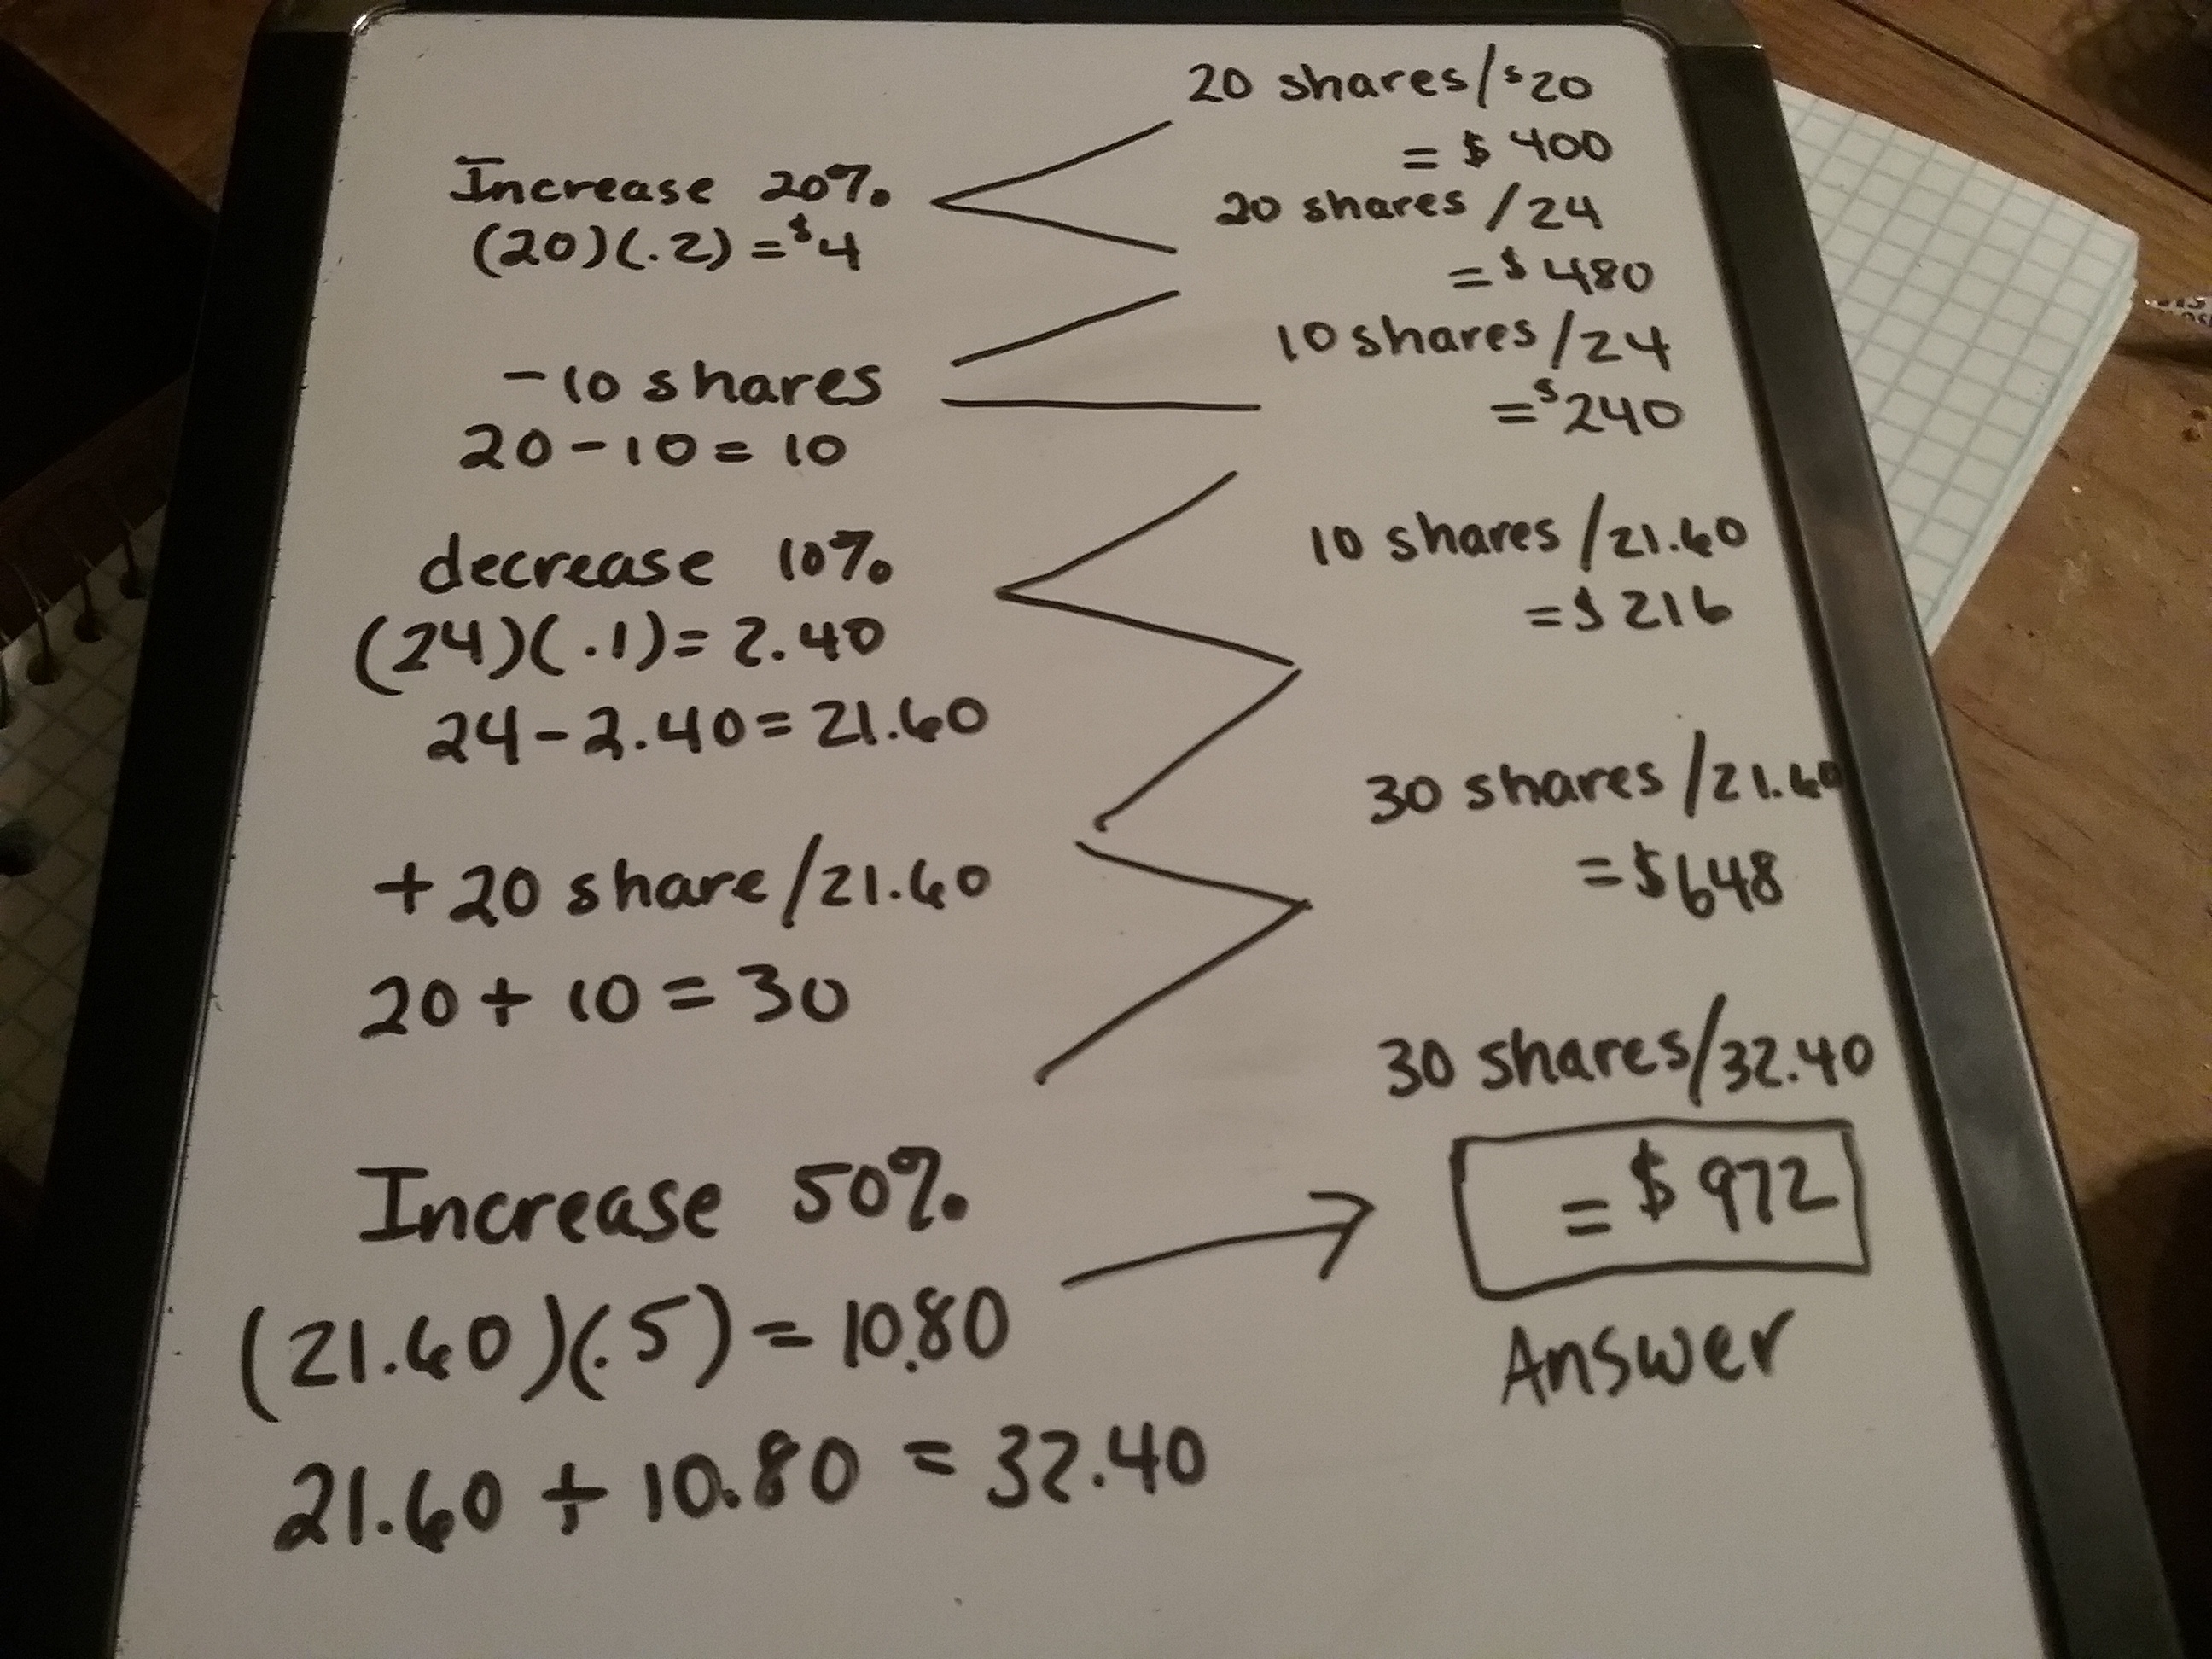 20 shares/$20
= $400
Increase 20%
(20)(.2) = $4
20 shares/24
= $480
-10 shares
20-10 = 10
10 shares/24
= $240
decrease 10%
(24)(.1) = 2.40
24-2.40 = 21.60
10 shares/21.60
= $216
+20 share/21.60
20 + 10 = 30
30 shares/21.60
= $648
Increase 50%
(21.60)(.5) = 10.80
21.60 + 10.80 = 32.40
30 shares/32.40
= $972
Answer